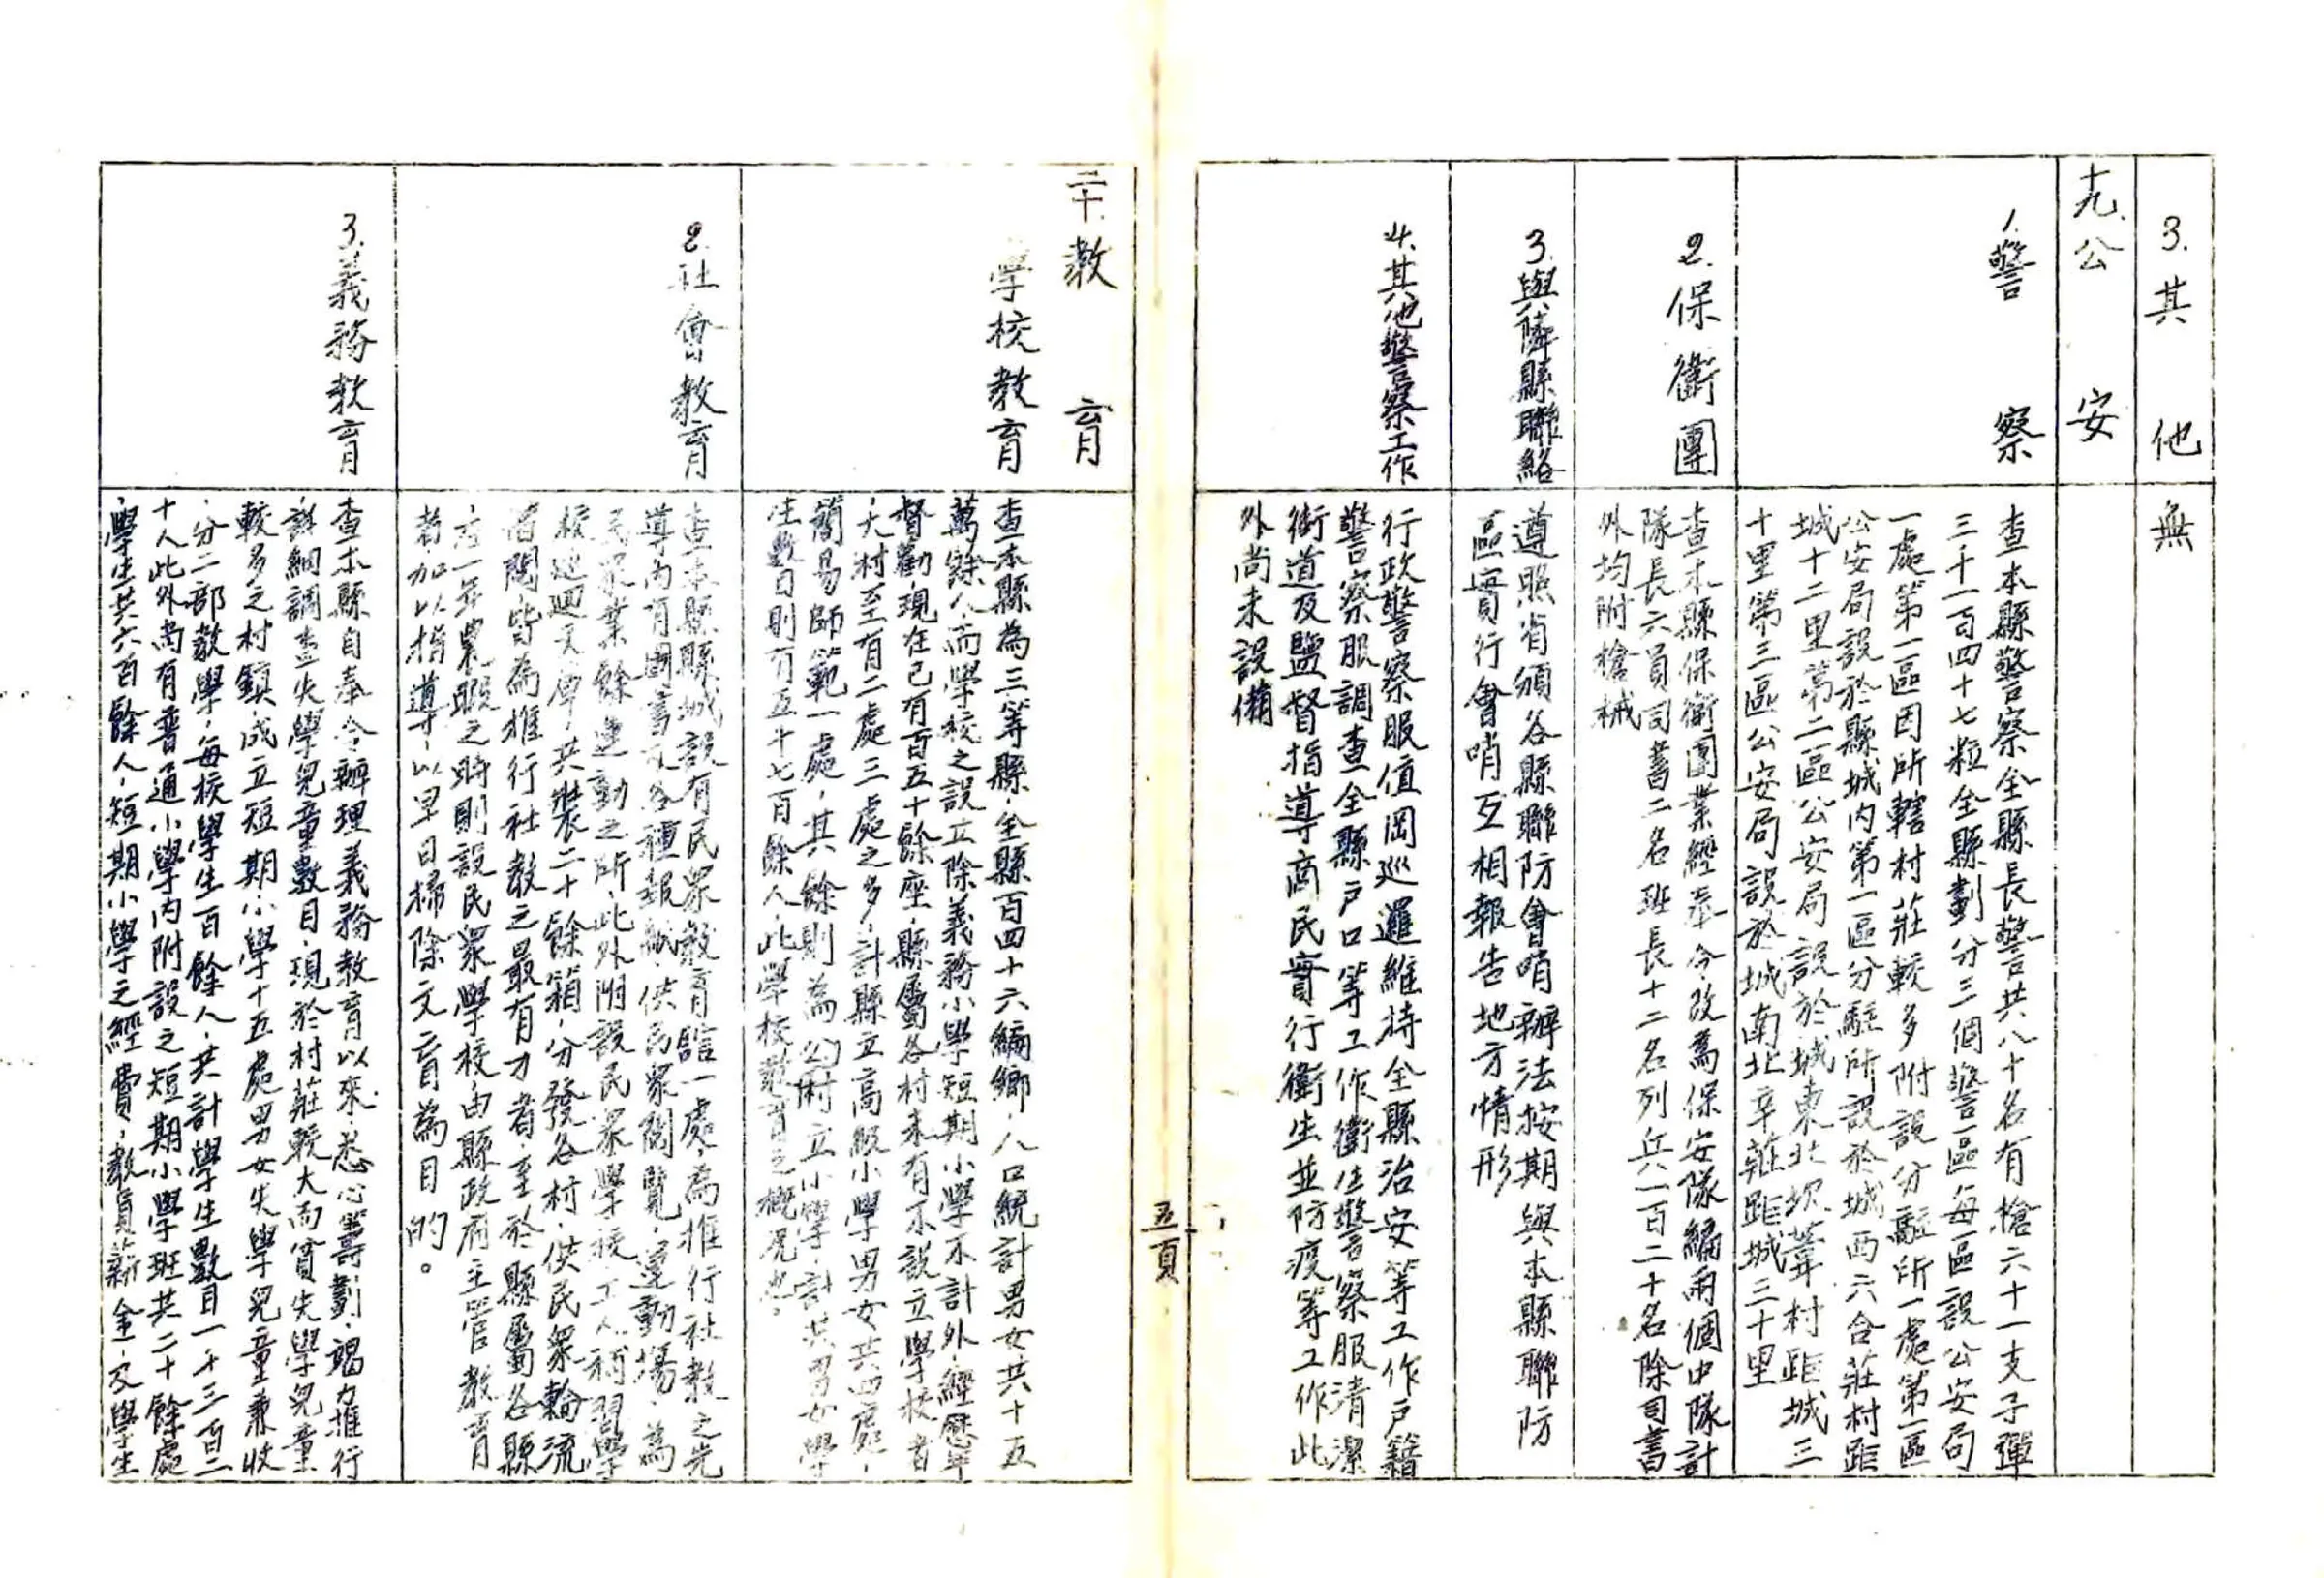 3.其他
無
十九.公安
1.警察
查本縣警察全縣長警共八十名有槍六十一支子彈
三千一百四十七粒全縣劃分三個警區每區設公安局
一處第一區因所轄村莊較多附設分駐所一處第一區
公安局設於縣城內第一區分駐所設於城西六合莊村距
城十二里第二區公安局設於城東北坎葦村距城三
十里第三區公安局設於城南北辛莊距城三十里
2.保衛團
查本縣保衛團業經奉令改爲保安隊編兩個中隊計
隊長六員司書二名班長十二名列兵一百二十名除司書
外均附槍械
3.與隣縣聯絡
遵照省頒各縣聯防會哨辦法按期與本縣聯防
區實行會哨互相報告地方情形
4.其他警察工作
行政警察服值岡巡邏維持全縣治安等工作戶籍
警察服調查全縣戶口等工作衛生警察服清潔
街道及監督指導商民實行衛生並防疫等工作此
外尚未設備
五頁
二十.教育
學校教育
查本縣為三等縣.全縣百四十六編鄉.人口統計男女共十五
萬餘人而學校之設立除義務小學短期小學不計外.經歷年
督勸.現在已有百五十餘座.縣屬各村未有不說立學校者
.大村至有二處三處之多.計縣立高級小學男女共四處.
簡易師範一處.其餘則為公村立小學.計共男女學
生數目則有五千七百餘人.此學校教育之概況也.
2.社會教育
查本縣縣城設有民眾教育舘一處.為推行社教之先
導內有圖書及各種報紙.供民眾閱覽.運動場.為
民眾業餘運動之所.此外附設民眾學校.工人補習學
校巡迴文庫.共裝二十餘箱.分發各村.供民眾輪流
借閱.皆為推行社教之最有力者.至於縣屬各縣
.在一年農暇之時則設民眾學校.由縣政府主管教育
者.加以指導.以早日掃除文盲為目的。
3.義務教育
查本縣自奉令辦理義務教育以來.悉心籌劃.竭力推行
詳細調查失學兒童數目.現於村莊較大而貧失學兒童
較多之村鎮成立短期小學十五處男女失學兒童兼收
.分二部教學.每校學生百餘人.共計學生數目一千三百二
十人此外尚有普通小學內附設之短期小學班共二十餘處
.學生共六百餘人.短期小學之經費.教員薪金.及學生